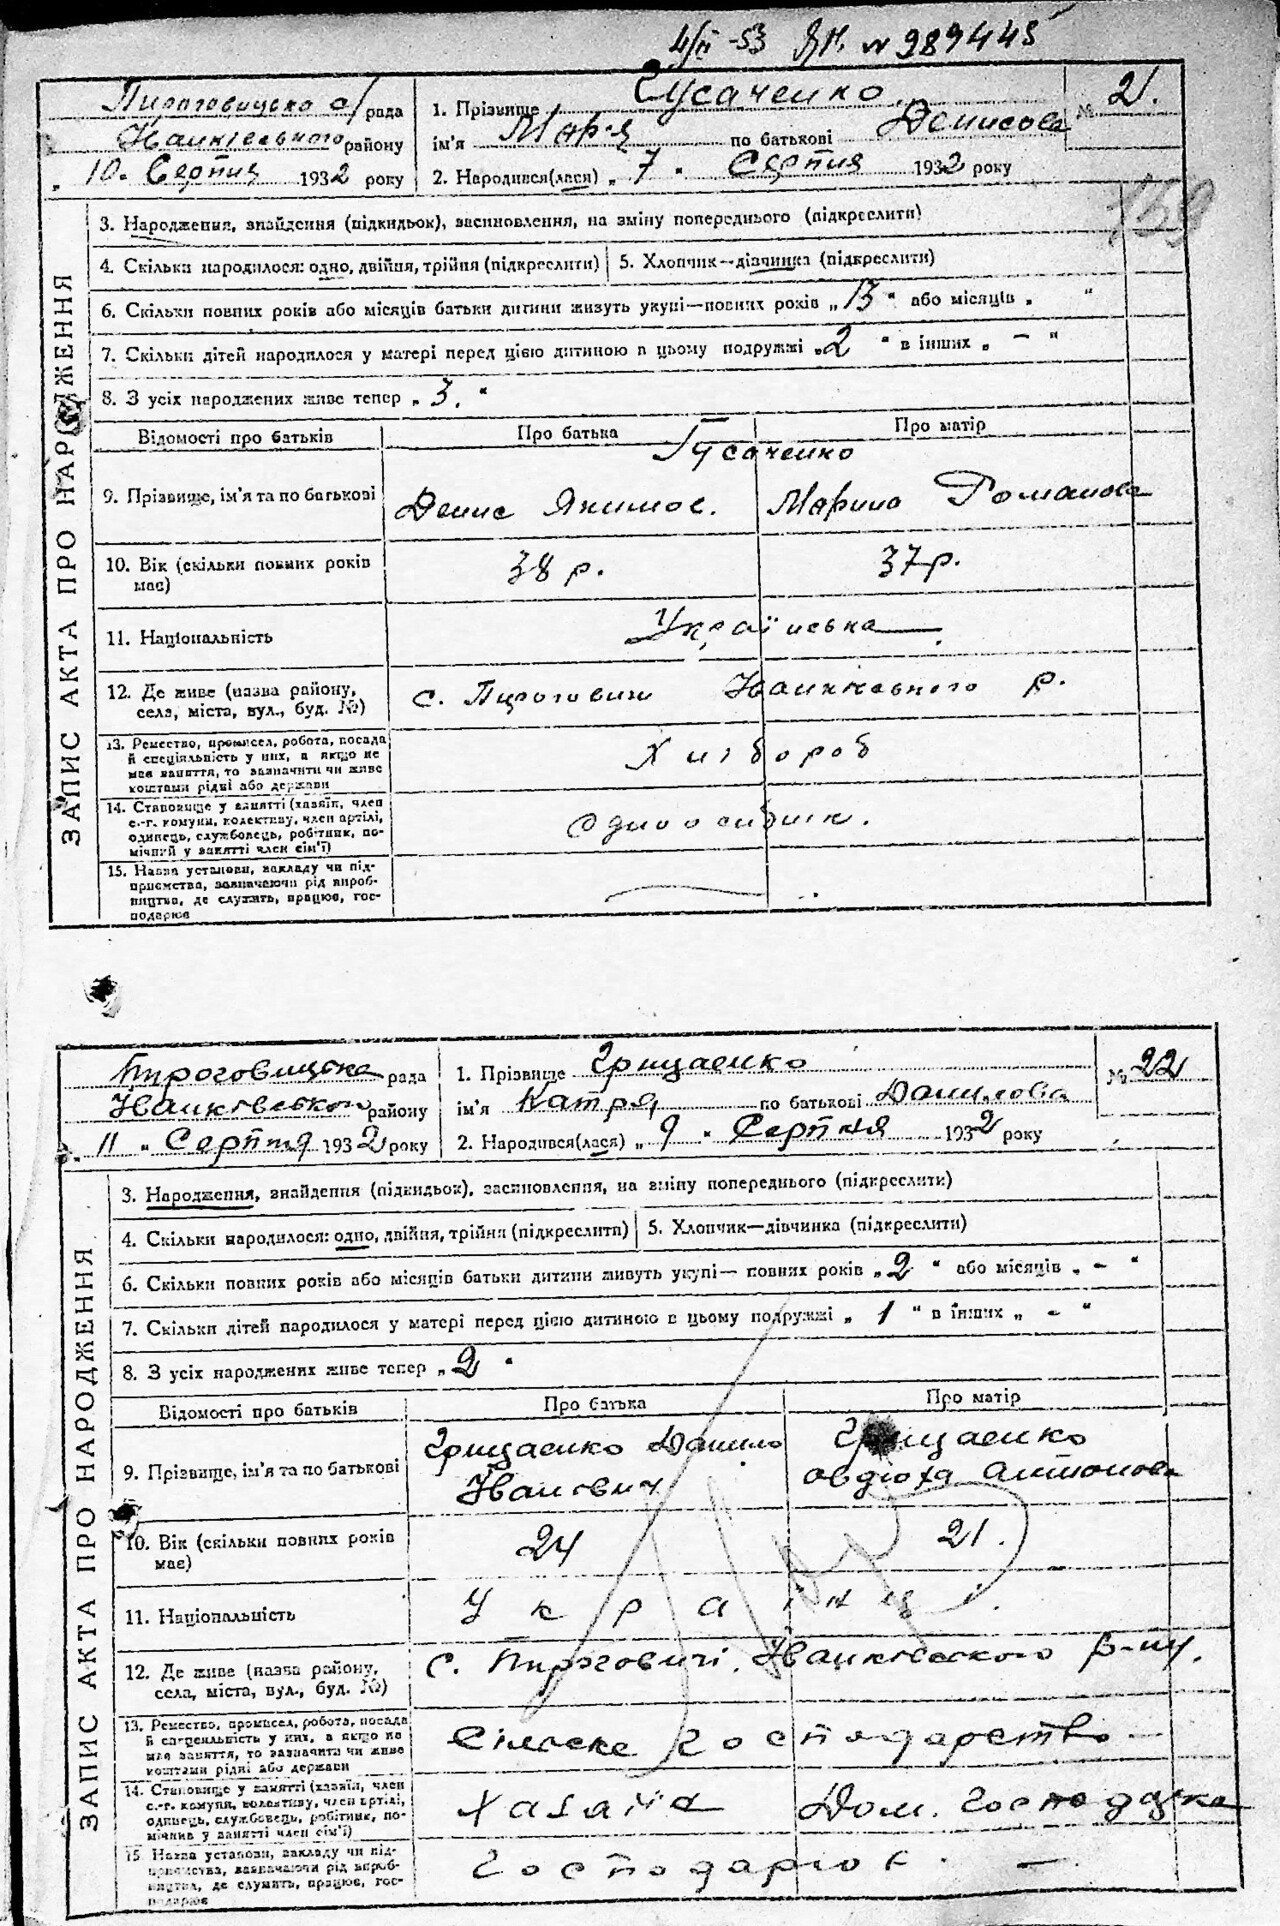 4/II -53 ЯК. № 989445
Пироговицько с/рада
Іванківського району
„ 10 " Серпня 1932 року
1. Прізвище Гусаченко
ім'я Мар'я по батькові Денисова
2. Народився(лася) „ 7 " Серпня 1932 року
№ 21.
159
ЗАПИС АКТА ПРО НАРОДЖЕННЯ
3. Народження, знайдення (підкидьок), засиновлення, на зміну попереднього (підкреслити)
4. Скільки народилося: одно, двійня, трійня (підкреслити) 5. Хлопчик—дівчинка (підкреслити)
6. Скільки повних років або місяців батьки дитини живуть укупі—повних років „ 13 " або місяців „ "
7. Скільки дітей народилося у матері перед цією дитиною в цьому подружжі „ 2 " в інших „ — "
8. З усіх народжених живе тепер „ 3. "
Відомості про батьків Про батька Про матір
Гусаченко
9. Прізвище, ім'я та по батькові Денис Якимов. Марина Романова
10. Вік (скільки повних років має) 38 р. 37 р.
11. Національність Українська
12. Де живе (назва району, села, міста, вул., буд. №) с. Пироговичі Іванківського р.
13. Ремество, промисел, робота, посада
й спеціяльність у них, а якщо не
має заняття, то зазначити чи живе
коштами рідні або держави
Хлібороб
14. Становище у занятті (хазяїн, член
с.-г. комуни, колективу, член артілі,
одинець, службовець, робітник, по-
мічний у занятті член сім'ї)
Одноосібник.
15. Назва установи, закладу чи під-
приємства, зазначаючи рід вироб-
ництва, де служить, працює, гос-
подарює
—
Пироговицька рада
Іванківського району
„ 11 " Серпня 1932 року
1. Прізвище Грищенко
ім'я Катря по батькові Данилова
2. Народився(лася) „ 9 " Серпня 1932 року
№ 22
ЗАПИС АКТА ПРО НАРОДЖЕННЯ
3. Народження, знайдення (підкидьок), засиновлення, на зміну попереднього (підкреслити)
4. Скільки народилося: одно, двійня, трійня (підкреслити) 5. Хлопчик—дівчинка (підкреслити)
6. Скільки повних років або місяців батьки дитини живуть укупі— повних років „ 2 " або місяців „ - "
7. Скільки дітей народилося у матері перед цією дитиною в цьому подружжі „ 1 " в інших „ - "
8. З усіх народжених живе тепер „ 2 "
Відомості про батьків Про батька Про матір
9. Прізвище, ім'я та по батькові
Грищенко Данило Іванович
Грищенко Овдюха Антонова
10. Вік (скільки повних років має) 24 21.
11. Національність Українці
12. Де живе (назва району, села, міста, вул., буд. №) с. Пироговичі. Іванківського р-ну.
13. Ремество, промисел, робота, посада
й спеціяльність у них, а якщо не
має заняття, то зазначити чи живе
коштами рідні або держави
Сільське господарство
14. Становище у занятті (хазяїн, член
с.-г. комуни, колективу, член артілі,
одинець, службовець, робітник, по-
мічник у занятті член сім'ї)
Хазаїн Дом. Господарка
15. Назва установи, закладу чи під-
приємства, зазначаючи рід вироб-
ництва, де служить, працює, гос-
подарює
Господарює. —